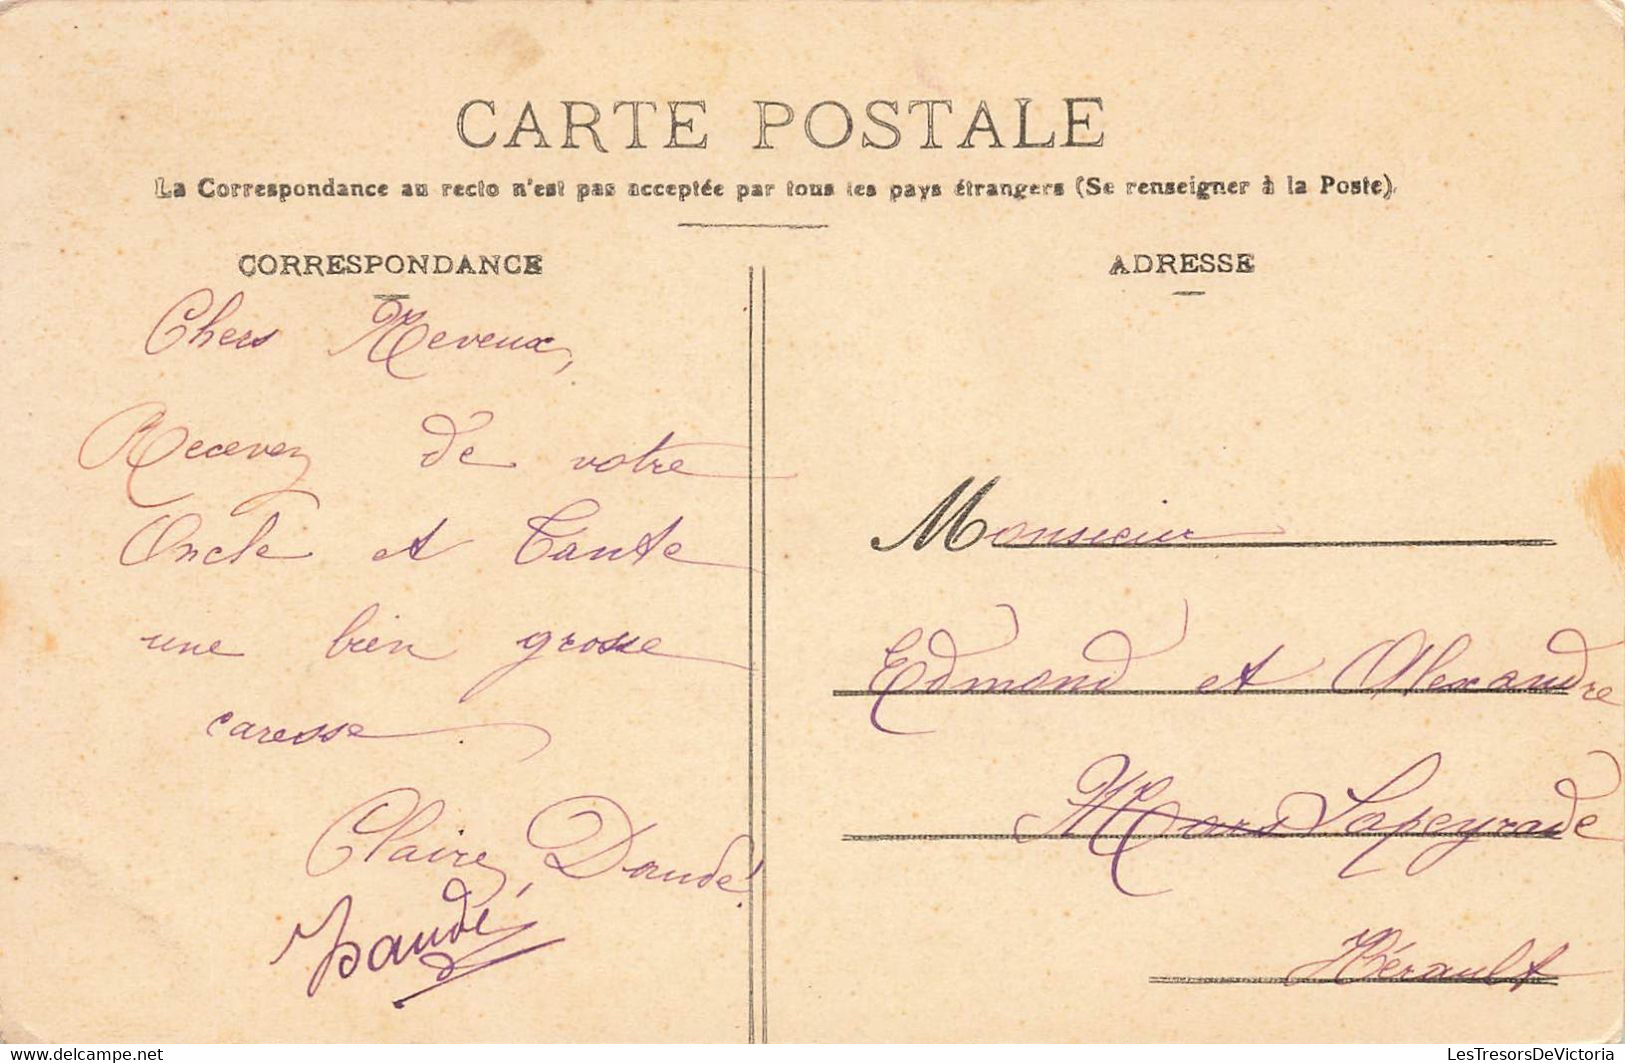 CARTE POSTALE
La Correspondance au recto n'est pas acceptée par tous les pays étrangers (Se renseigner à la Poste).
CORRESPONDANCE
Chers Neveux,
Recevez de votre
Oncle et Tante
une bien grosse
caresse.
Claire, Daudé.
Daudé
ADRESSE
Monsieur
Edmond et Alexandre
Lapeyrade
Hérault
delcampe.net
LesTresorsDeVictoria